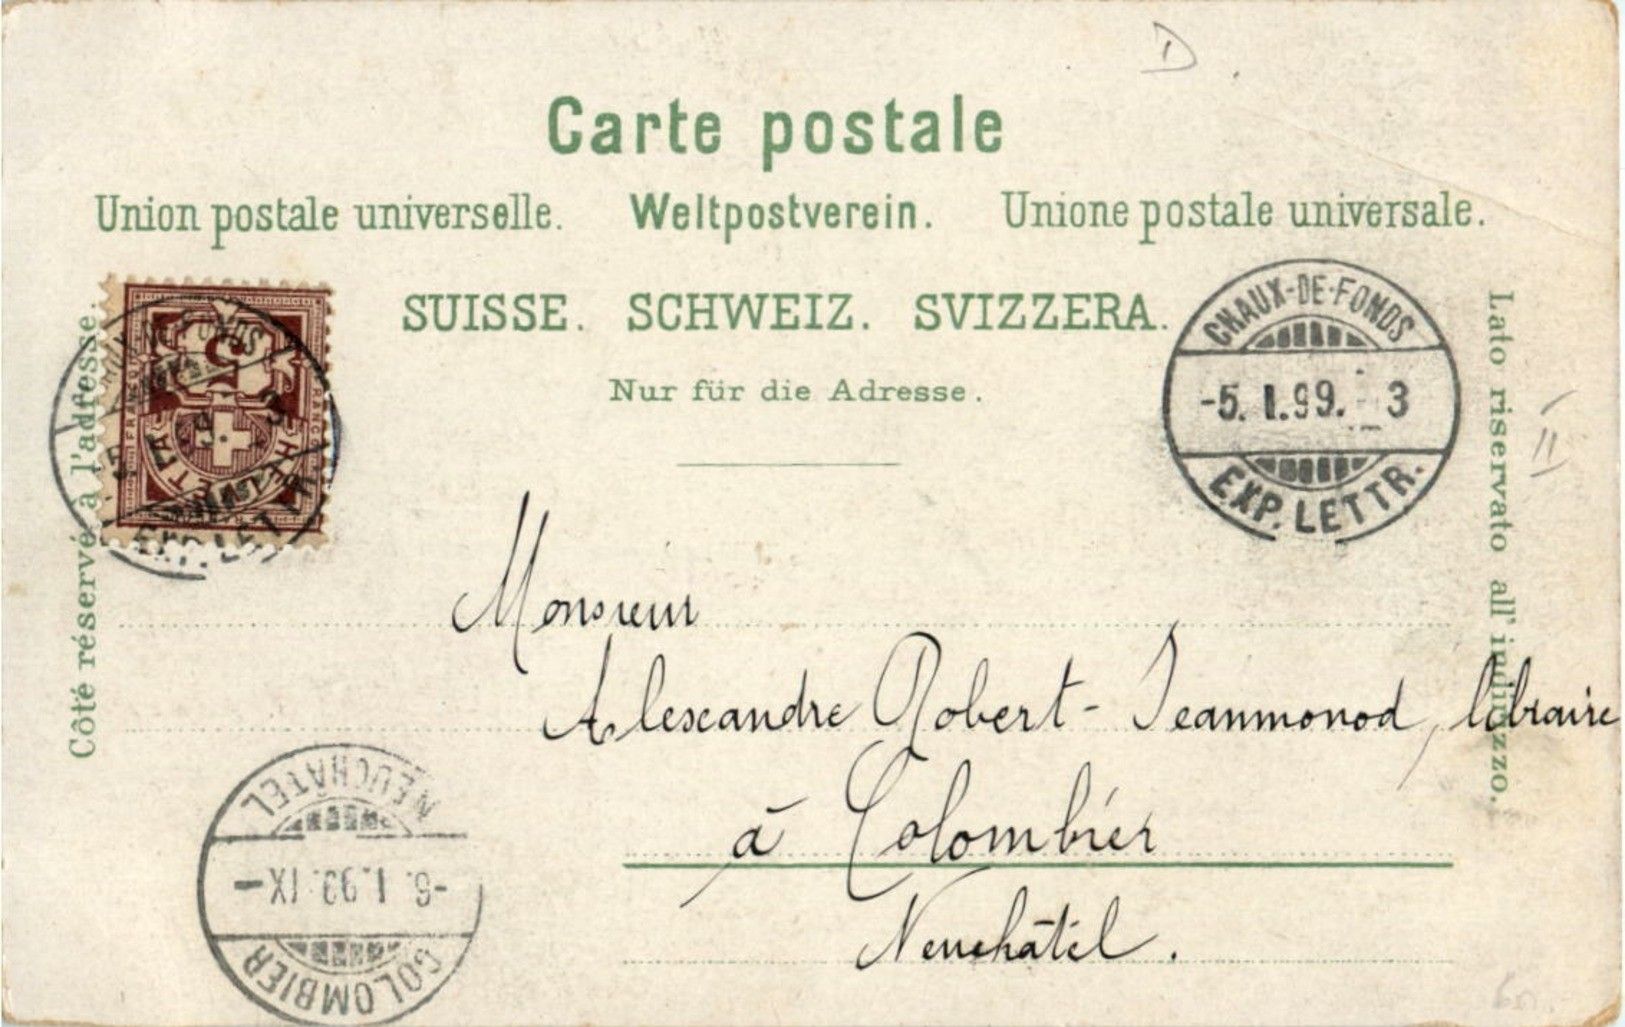 D.
Carte postale
Union postale universelle. Weltpostverein. Unione postale universale.
SUISSE. SCHWEIZ. SVIZZERA.
Nur für die Adresse.
Côté réservé à l'adresse.
Lato riservato all'indirizzo.
5
CHAUX-DE-FONDS
-5. I.99. 3
EXP. LETTR.
II
Monsieur
Alexandre Robert-Jeanmonod, libraire
à Colombier
Neuchâtel.
COLOMBIER
-6. I.99. IX-
NEUCHÂTEL